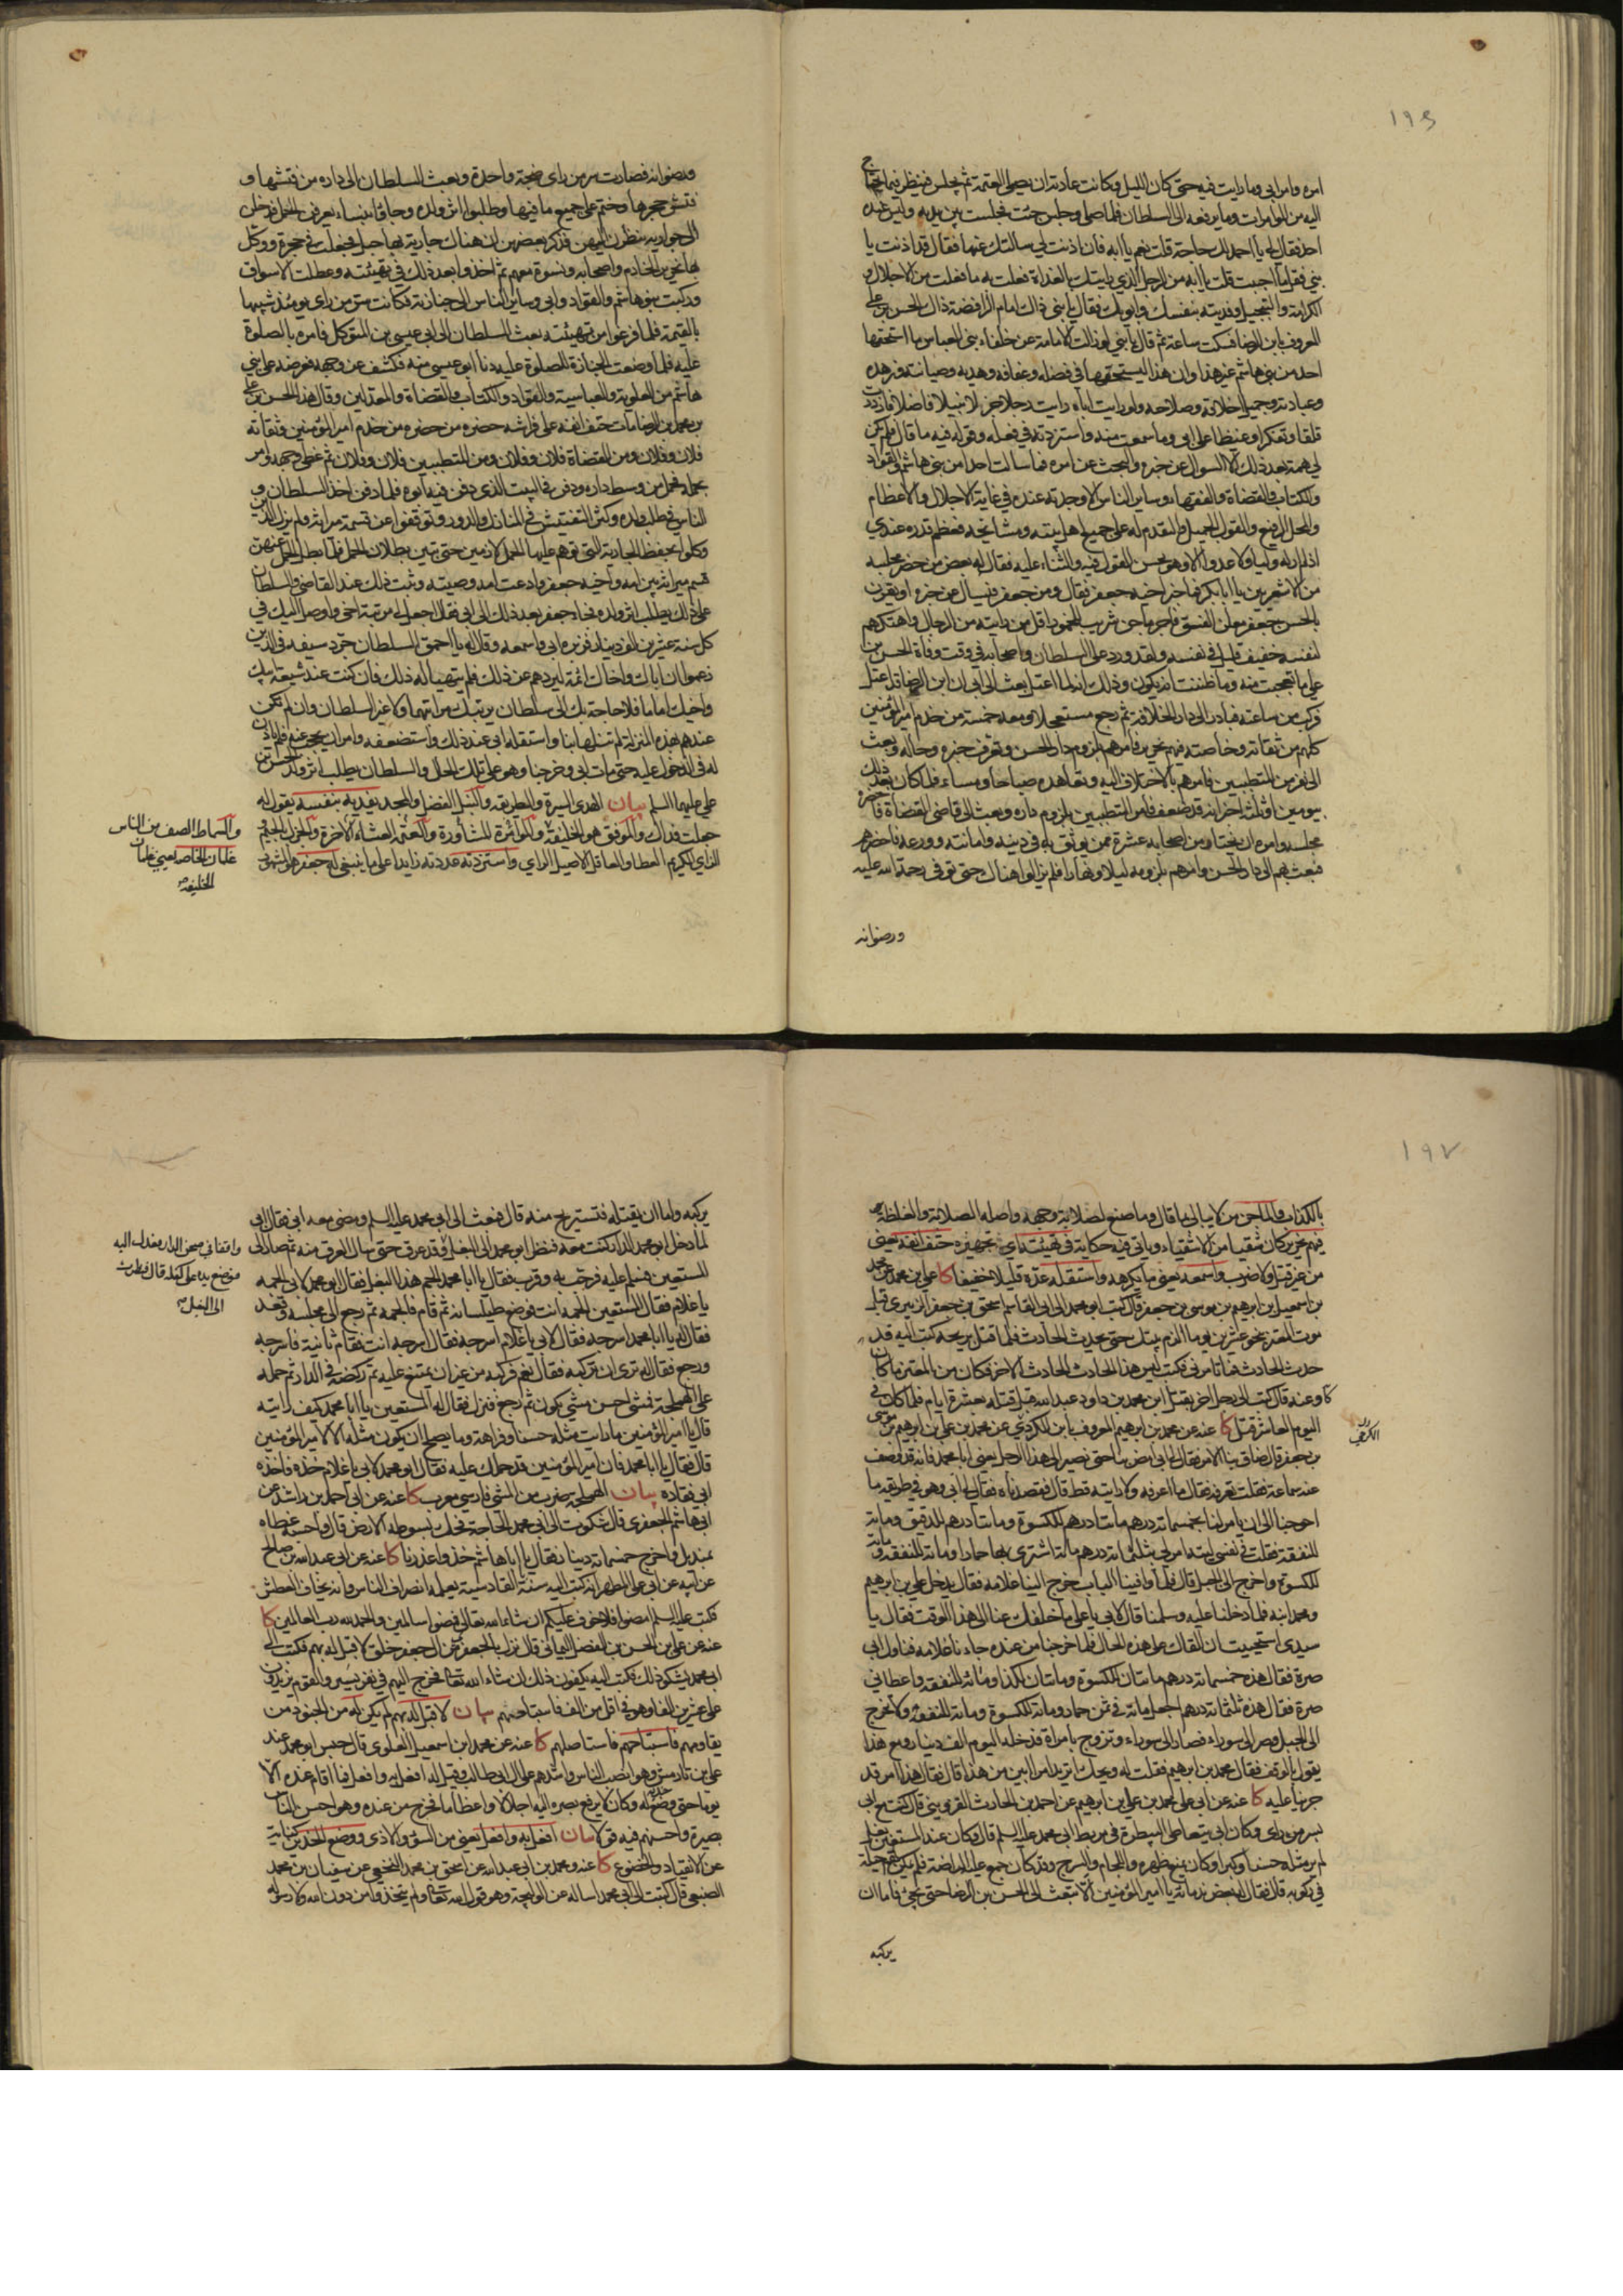 ١٩٦
امره وامر ابي وما رايت فيه حتى كان الليل وكانت عادته ان يصلي العتمة ثم يجلس فينظر فيما يحتاج
اليه من الموامرات وما يرفعه الى السلطان فلما صلى وجلس جئت فجلست بين يديه وليس عنده
احد فقال لي يا احمد لك حاجة قلت نعم يا ابه فان اذنت لي سالتك عنها فقال قد اذنت يا
بني فقل ما احببت قلت يا ابه من الرجل الذي رايتك بالغداة فعلت به ما فعلت من الاجلال و
الكرامة والتبجيل وفديته بنفسك وابويك فقال يا بني ذاك امام الرافضة ذاك الحسن بن علي
المعروف بابن الرضا فسكت ساعة ثم قال يا بني لو زالت الامامة عن خلفاء بني العباس ما استحقها
احد من بني هاشم غير هذا وان هذا ليستحقها في فضله وعفافه وهديه وصيانته وزهده
وعبادته وجميل اخلاقه وصلاحه ولو رايت اباه رايت رجلا جزلا نبيلا فاضلا فازددت
قلقا وتفكرا وغيظا على ابي وما سمعت منه واستزدته في فعله وقوله فيه ما قال فلم يكن
لي همة بعد ذلك الا السوال عن خبره والبحث عن امره فما سالت احدا من بني هاشم والقواد
والكتاب والقضاة والفقهاء وساير الناس الا وجدته عنده في غاية الاجلال والاعظام
والمحل الرفيع والقول الجميل والتقديم له على جميع اهل بيته ومشايخه فعظم قدره عندي
اذ لم ار له وليا ولا عدوا الا وهو يحسن القول فيه والثناء عليه فقال له بعض من حضر مجلسه
من الاشعريين يا ابا بكر فما خبر اخيه جعفر فقال ومن جعفر فيسال عن خبره او يقرن
بالحسن جعفر معلن الفسق فاجر ماجن شريب للخمور اقل من رايته من الرجال واهتكهم
لنفسه خفيف قليل في نفسه ولقد ورد على السلطان واصحابه في وقت وفاة الحسن بن
علي ما تعجبت منه وما ظننت انه يكون وذلك انه لما اعتل بعث الى ابي ان ابن الرضا قد اعتل
فركب من ساعته فبادر الى دار الخلافة ثم رجع مستعجلا ومعه خمسة من خدم امير المؤمنين
كلهم من ثقاته وخاصته فيهم نحرير فامرهم بلزوم دار الحسن وتعرف خبره وحاله وبعث
الى نفر من المتطببين فامرهم بالاختلاف اليه وتعاهده صباحا ومساء فلما كان بعد ذلك
بيومين او ثلثة اخبر انه قد ضعف فامر المتطببين بلزوم داره وبعث الى قاضي القضاة فاحضره
مجلسه وامره ان يختار من اصحابه عشرة ممن يوثق به في دينه وامانته وورعه فاحضرهم
فبعث بهم الى دار الحسن وامرهم بلزومه ليلا ونهارا فلم يزالوا هناك حتى توفي رحمة الله عليه
ورضوانه
ورضوانه فصارت سر من راى ضجة واحدة وبعث السلطان الى داره من فتشها و
فتش حجرها وختم على جميع ما فيها وطلبوا اثر ولده وجاؤا بنساء يعرفن الحمل فدخلن
الى جواريه ينظرن اليهن فذكر بعضهن ان هناك جارية بها حبل فجعلت في حجرة ووكل
بها نحرير الخادم واصحابه ونسوة معهم ثم اخذوا بعد ذلك في تهيئته وعطلت الاسواق
وركبت بنو هاشم والقواد وابي وساير الناس الى جنازته فكانت سر من راى يومئذ شبيها
بالقيمة فلما فرغوا من تهيئته بعث السلطان الى ابي عيسى بن المتوكل فامره بالصلوة
عليه فلما وضعت الجنازة للصلوة عليه دنا ابو عيسى منه فكشف عن وجهه فعرضه على بني
هاشم من العلوية والعباسية والقواد والكتاب والقضاة والمعدلين وقال هذا الحسن بن علي
بن محمد بن الرضا مات حتف انفه على فراشه حضره من حضره من خدم امير المؤمنين وثقاته
فلان وفلان ومن القضاة فلان وفلان ومن المتطببين فلان وفلان ثم غطى وجهه وامر
بحمله فحمل من وسط داره ودفن في البيت الذي دفن فيه ابوه فلما دفن اخذ السلطان و
الناس في طلب ولده وكثر التفتيش في المنازل والدور وتوقفوا عن قسمة ميراثه ولم يزل الذين
وكلوا بحفظ الجارية التي توهم عليها الحمل لازمين حتى تبين بطلان الحمل فلما بطل الحمل عنهن
قسم ميراثه بين امه واخيه جعفر وادعت امه وصيته وثبت ذلك عند القاضي والسلطان
على ذلك يطلب اثر ولده فجاء جعفر بعد ذلك الى ابي فقال اجعل لي مرتبة اخي واوصل اليك في
كل سنة عشرين الف دينار فزبره ابي واسمعه وقال له يا احمق السلطان جرد سيفه في الذين
زعموا ان اباك واخاك ائمة ليردهم عن ذلك فلم يتهيا له ذلك فان كنت عند شيعة ابيك
واخيك اماما فلا حاجة بك الى سلطان يرتبك مراتبهما ولا غير السلطان وان لم تكن
عندهم بهذه المنزلة لم تنلها بنا واستقله ابي عند ذلك واستضعفه وامر ان يحجب عنه فلم ياذن
له في الدخول عليه حتى مات ابي وخرجنا وهو على تلك الحال والسلطان يطلب اثر ولد الحسن بن
علي عليهما السلم بيان الهدي السيرة والطريقة والنبل الفضل والمجد يفديه بنفسه يقول له
جعلت فداك والموفق هو الخليفة والموامرة المشاورة والعتمة العشاء الاخرة والجزل الجيد
الراي الكريم العطا والعاقل الاصيل الراي واستزدته عددته زايدا على ما ينبغي له جعفر هو المشهور
والسماط الصف من الناس
غلمان الخاصه يعني غلمان
الخليفة
١٩٧
بالكذاب والماجن من لا يبالي ما قال وما صنع لصلابة وجهه واصله الصلابة والغلظة
فيهم نحرير كان شقيا من الاشقياء وياتي فيه حكاية في تهيئته اي تجهيزه حتف انفه يعني
من غير قتل ولا ضرب واسمعه يعني ما يكرهه واستقله عده قليلا خفيفا كا علي بن محمد عن محمد
بن اسمعيل بن ابرهيم بن موسى بن جعفر قال كتب ابو محمد الى ابي القاسم اسحق بن جعفر الزبيري قبل
موت المعتز بنحو عشرين يوما الزم بيتك حتى يحدث الحادث فلما قتل بريحه كتب اليه قد
حدث الحادث فما تامرني فكتب ليس هذا الحادث الحادث الاخر فكان من المعتز ما كان
كا وعنه قال كتب الى رجل اخر يقتل ابن محمد بن داود عبد الله قبل قتله بعشرة ايام فلما كان في
اليوم العاشر قتل كا عنه عن محمد بن ابرهيم المعروف بابن الكردي عن محمد بن علي بن ابرهيم بن موسى
بن جعفر قال ضاق بنا الامر فقال لي ابي امض بنا حتى نصير الى هذا الرجل يعني ابا محمد فانه قد وصف
عنه سماحة فقلت تعرفه فقال ما اعرفه ولا رايته قط قال فقصدناه فقال لي ابي وهو في طريقه ما
احوجنا الى ان يامر لنا بخمسمائة درهم مائتا درهم للكسوة ومائتا درهم للدقيق ومائة
للنفقة فقلت في نفسي ليته امر لي بثلثمائة درهم مائة اشتري بها حمارا ومائة للنفقة ومائة
للكسوة واخرج الى الجبل قال فلما وافينا الباب خرج الينا غلامه فقال يدخل علي بن ابرهيم
ومحمد ابنه فلما دخلنا عليه وسلمنا قال لابي يا علي ما خلفك عنا الى هذا الوقت فقال يا
سيدي استحييت ان القاك على هذه الحال فلما خرجنا من عنده جاءنا غلامه فناول ابي
صرة فقال هذه خمسمائة درهم مائتان للكسوة ومائتان لكذا ومائة للنفقة واعطاني
صرة فقال هذه ثلثمائة درهم اجعل مائة في ثمن حمار ومائة للكسوة ومائة للنفقة ولا تخرج
الى الجبل وصر الى سوراء فصار الى سوراء وتزوج بامراة فدخله اليوم الف دينار ومع هذا
يقول بالوقف فقال محمد بن ابرهيم فقلت له ويحك اتريد امرا ابين من هذا قال فقال هذا امر قد
جرينا عليه كا عنه عن ابي علي محمد بن علي بن ابرهيم عن احمد بن الحارث القزويني قال كنت مع ابي
بسر من راى وكان ابي يتعاطى البيطرة في مربط ابي محمد عليه السلم قال وكان عند المستعين بغل
لم ير مثله حسنا وكبرا وكان يمنع ظهره واللجام والسرج وقد كان جمع عليه الراضة فلم يكن لهم حيلة
في ركوبه قال فقال له بعض ندمائه يا امير المؤمنين الا تبعث الى الحسن بن الرضا حتى يجيء فاما ان
يركبه
يركبه واما ان يقتله فتستريح منه قال فبعث الى ابي محمد عليه السلم ومضى معه ابي فقال ابي
لما دخل ابو محمد الدار كنت معه فنظر ابو محمد الى البغل وقد عرق حتى سال العرق منه ثم صار الى
المستعين فسلم عليه فرحب به وقرب فقال يا ابا محمد الجم هذا البغل فقال ابو محمد لابي الجمه
يا غلام فقال المستعين الجمه انت فوضع طيلسانه ثم قام فالجمه ثم رجع الى مجلسه وقعد
فقال له يا ابا محمد اسرجه فقال لابي يا غلام اسرجه فقال اسرجه انت فقام ثانية فاسرجه
ورجع فقال له ترى ان تركبه فقال نعم فركبه من غير ان يمتنع عليه ثم ركضه في الدار ثم حمله
على الهملجة فمشى احسن مشي يكون ثم رجع فنزل فقال له المستعين يا ابا محمد كيف رايته
قال يا امير المؤمنين ما رايت مثله حسنا وفراهة وما يصلح ان يكون مثله الا لامير المؤمنين
قال فقال يا ابا محمد فان امير المؤمنين قد حملك عليه فقال ابو محمد لابي يا غلام خذه فاخذه
ابي فقاده بيان الهملجة ضرب من المشي فارسي معرب كا عنه عن ابي احمد بن راشد عن
ابي هاشم الجعفري قال شكوت الى ابي محمد الحاجة فحك بسوطه الارض قال واحسبه غطاه
بمنديل واخرج خمسمائة دينار فقال يا ابا هاشم خذ واعذرنا كا عنه عن ابي عبد الله بن صالح
عن ابيه عن ابي علي المطهر انه كتب اليه سنة القادسية يعلمه انصراف الناس وانه يخاف العطش
فكتب عليه السلم امضوا فلا خوف عليكم ان شاء الله تعالى فمضوا سالمين والحمد لله رب العالمين كا
عنه عن علي بن الحسن بن الفضل اليماني قال نزل بالجعفري من ال جعفر خلق لا قبل له بهم فكتب الى
ابي محمد يشكو ذلك فكتب اليه تكفون ذلك ان شاء الله تعالى فخرج اليهم في نفر يسير والقوم يزيدون
على عشرين الفا وهو في اقل من الف فاستباحهم بيان لا قبل له بهم لم يكن له من الجنود من
يقاومهم فاستباحهم فاستاصلهم كا عنه عن محمد بن اسمعيل العلوي قال حبس ابو محمد عند
علي بن نارمش وهو انصب الناس واشدهم على ال ابي طالب وقيل له افعل به وافعل فما اقام عنده الا
يوما حتى وضع خديه له وكان لا يرفع بصره اليه اجلالا واعظاما فخرج من عنده وهو احسن الناس
بصيرة واحسنهم فيه قولا بيان افعل به وافعل يعني من السوء والاذى ووضع الخدين كناية
عن الانقياد والخضوع كا عنه ومحمد بن ابي عبد الله عن اسحق بن محمد النخعي عن سفيان بن محمد
الضبعي قال كتبت الى ابي محمد اساله عن الوليجة وهو قول الله تعالى ولم يتخذوا من دون الله ولا رسوله
واقفا في صحن الدار فعدل اليه
فوضع يده على كفله قال فنظرت
الى البغل